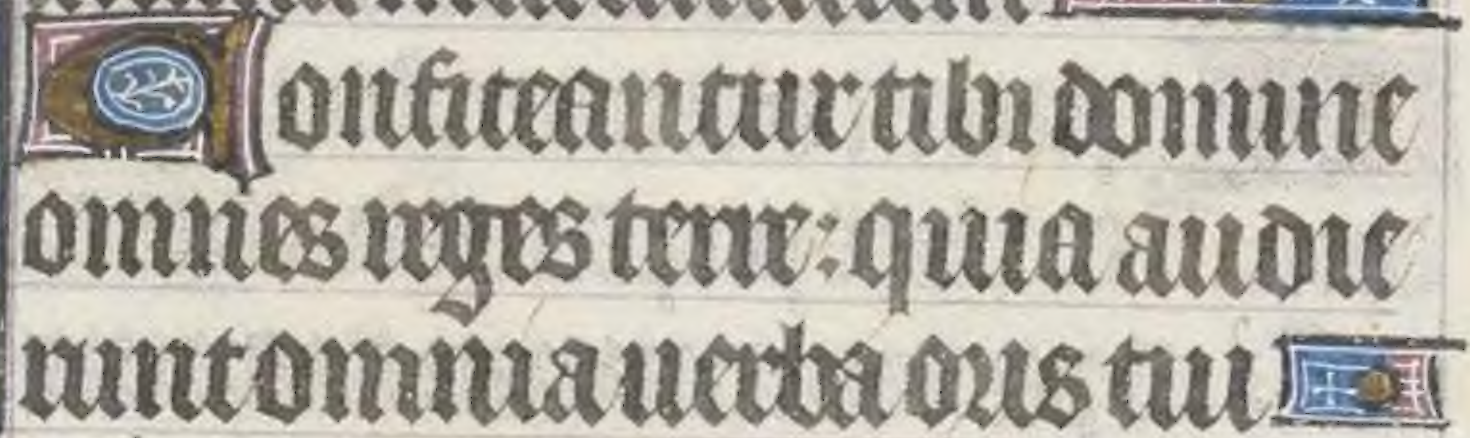 Confiteantur tibi domine
omnes reges terre: quia audie
runt omnia uerba oris tui